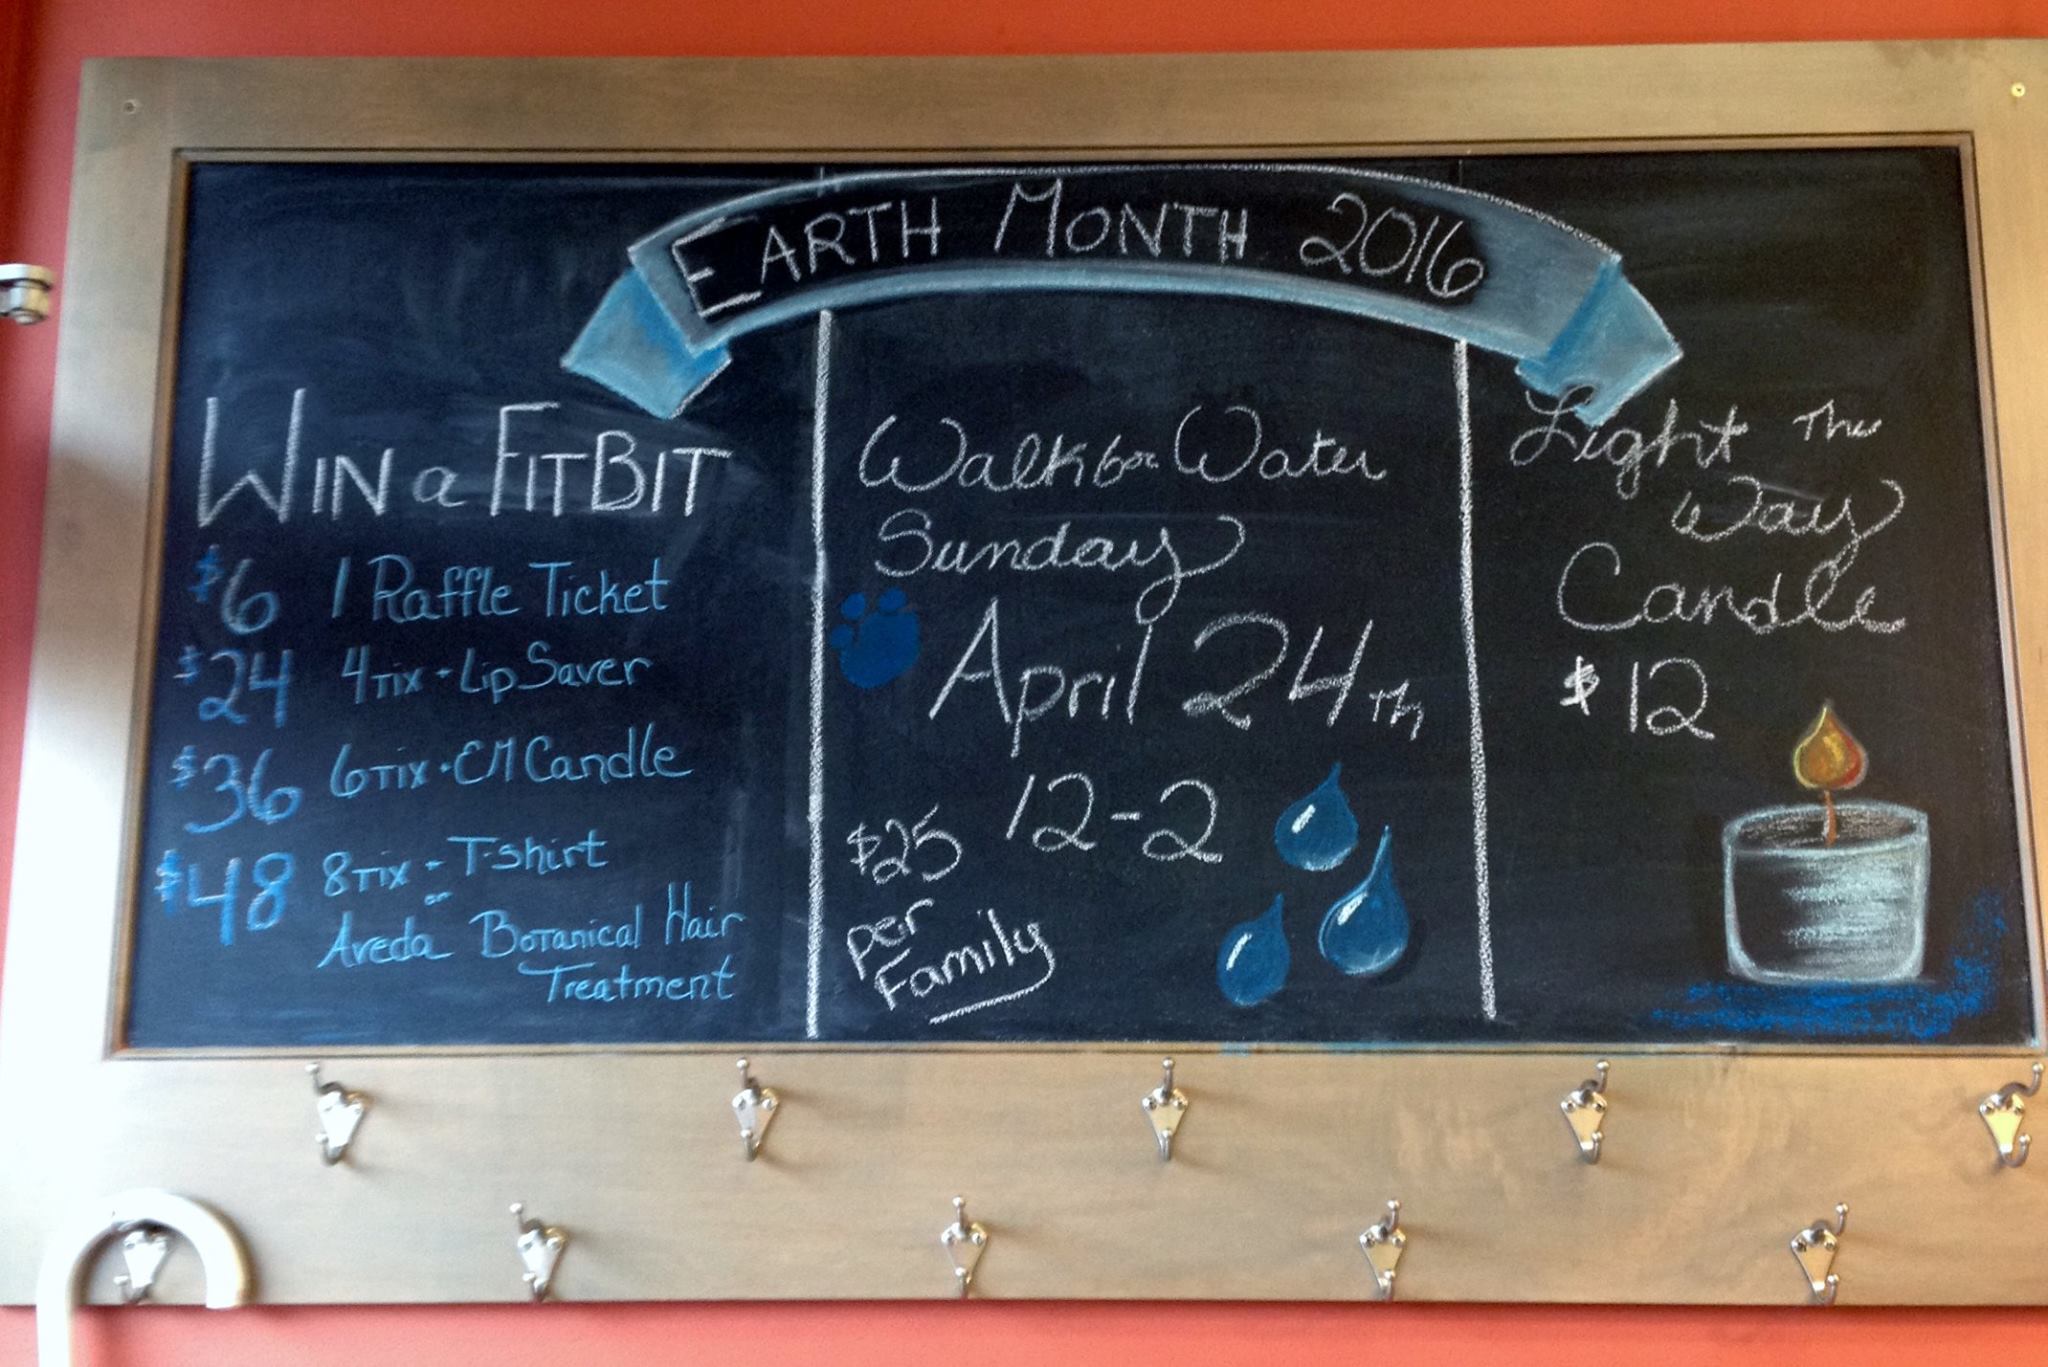 EARTH MONTH 2016
WIN a FITBIT
$6 1 Raffle Ticket
$24 4 TIX - Lip Saver
$36 6 TIX - EM Candle
$48 8 TIX - T-shirt
or
Aveda Botanical Hair
Treatment
Walk for Water
Sunday
April 24th
12-2
$25
per
Family
Light The
Way
Candle
$12